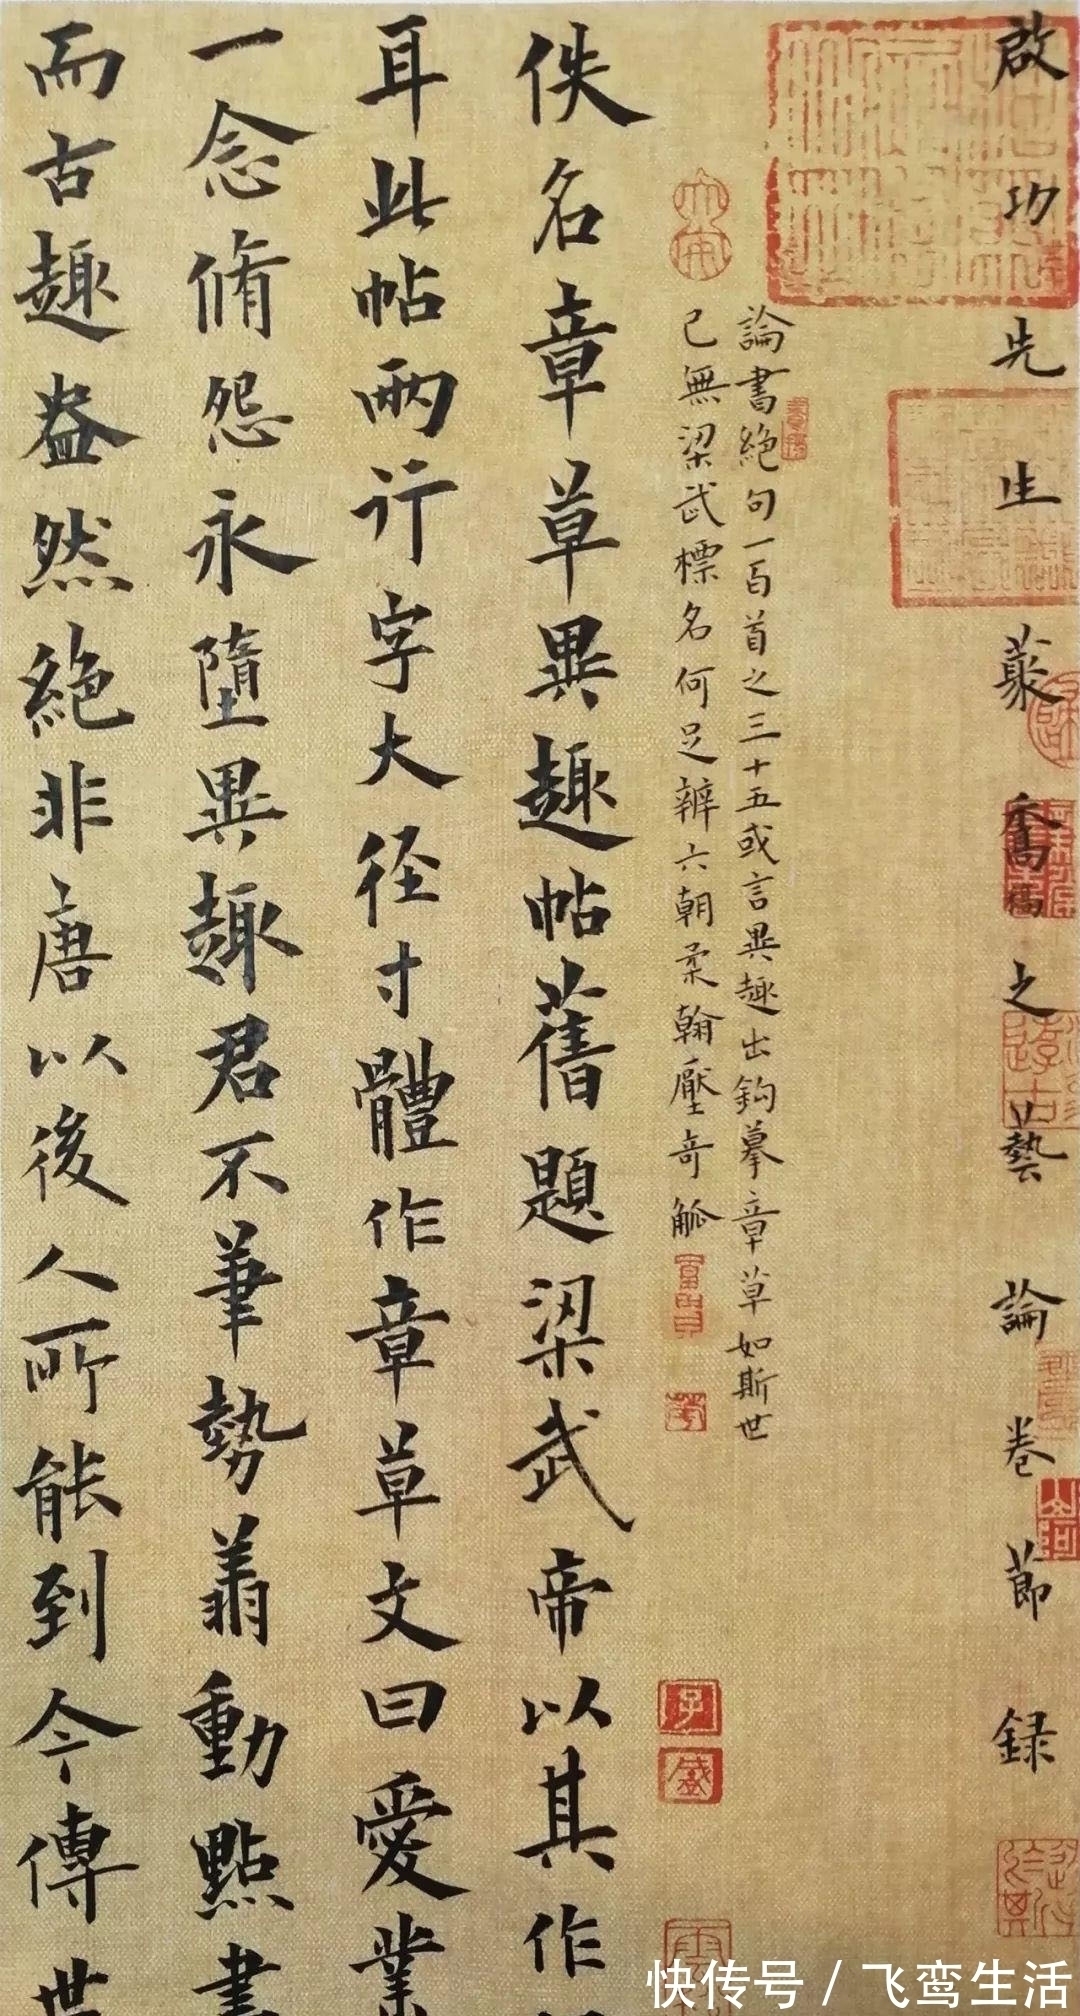 啟功先生之藝論卷節録
論書絕句一百首之三十五或言異趣出鈎摹章草如斯世
已無梁武標名何足辨六朝柔翰壓奇觚
佚名章草異趣帖舊題梁武帝以其作
耳此帖兩行字大径寸體作章草文曰愛業
一念脩怨永墮異趣君不筆勢翥動點畫
而古趣盎然絕非唐以後人所能到今傳世
快传号 / 飞鸾生活